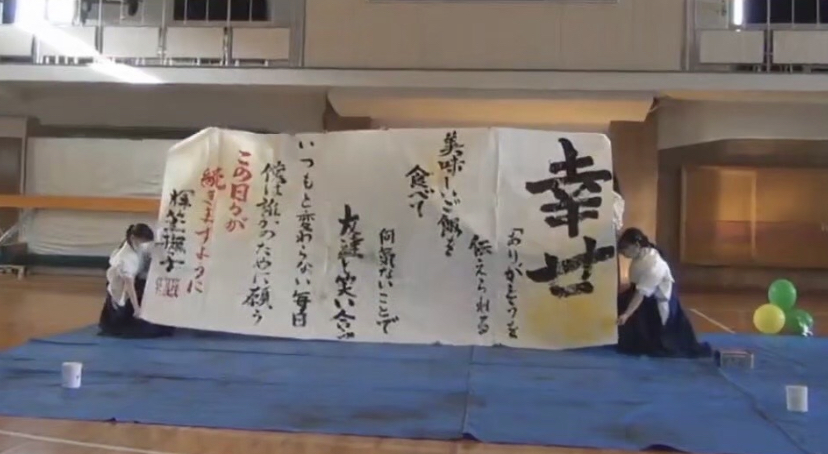 幸せ
「ありがとうを
伝えられる
美味しいご飯を
食べて
何気ないことで
友達と笑い合う
いつもと変わらない毎日
僕は誰かのために願う
この日々が
続きますように